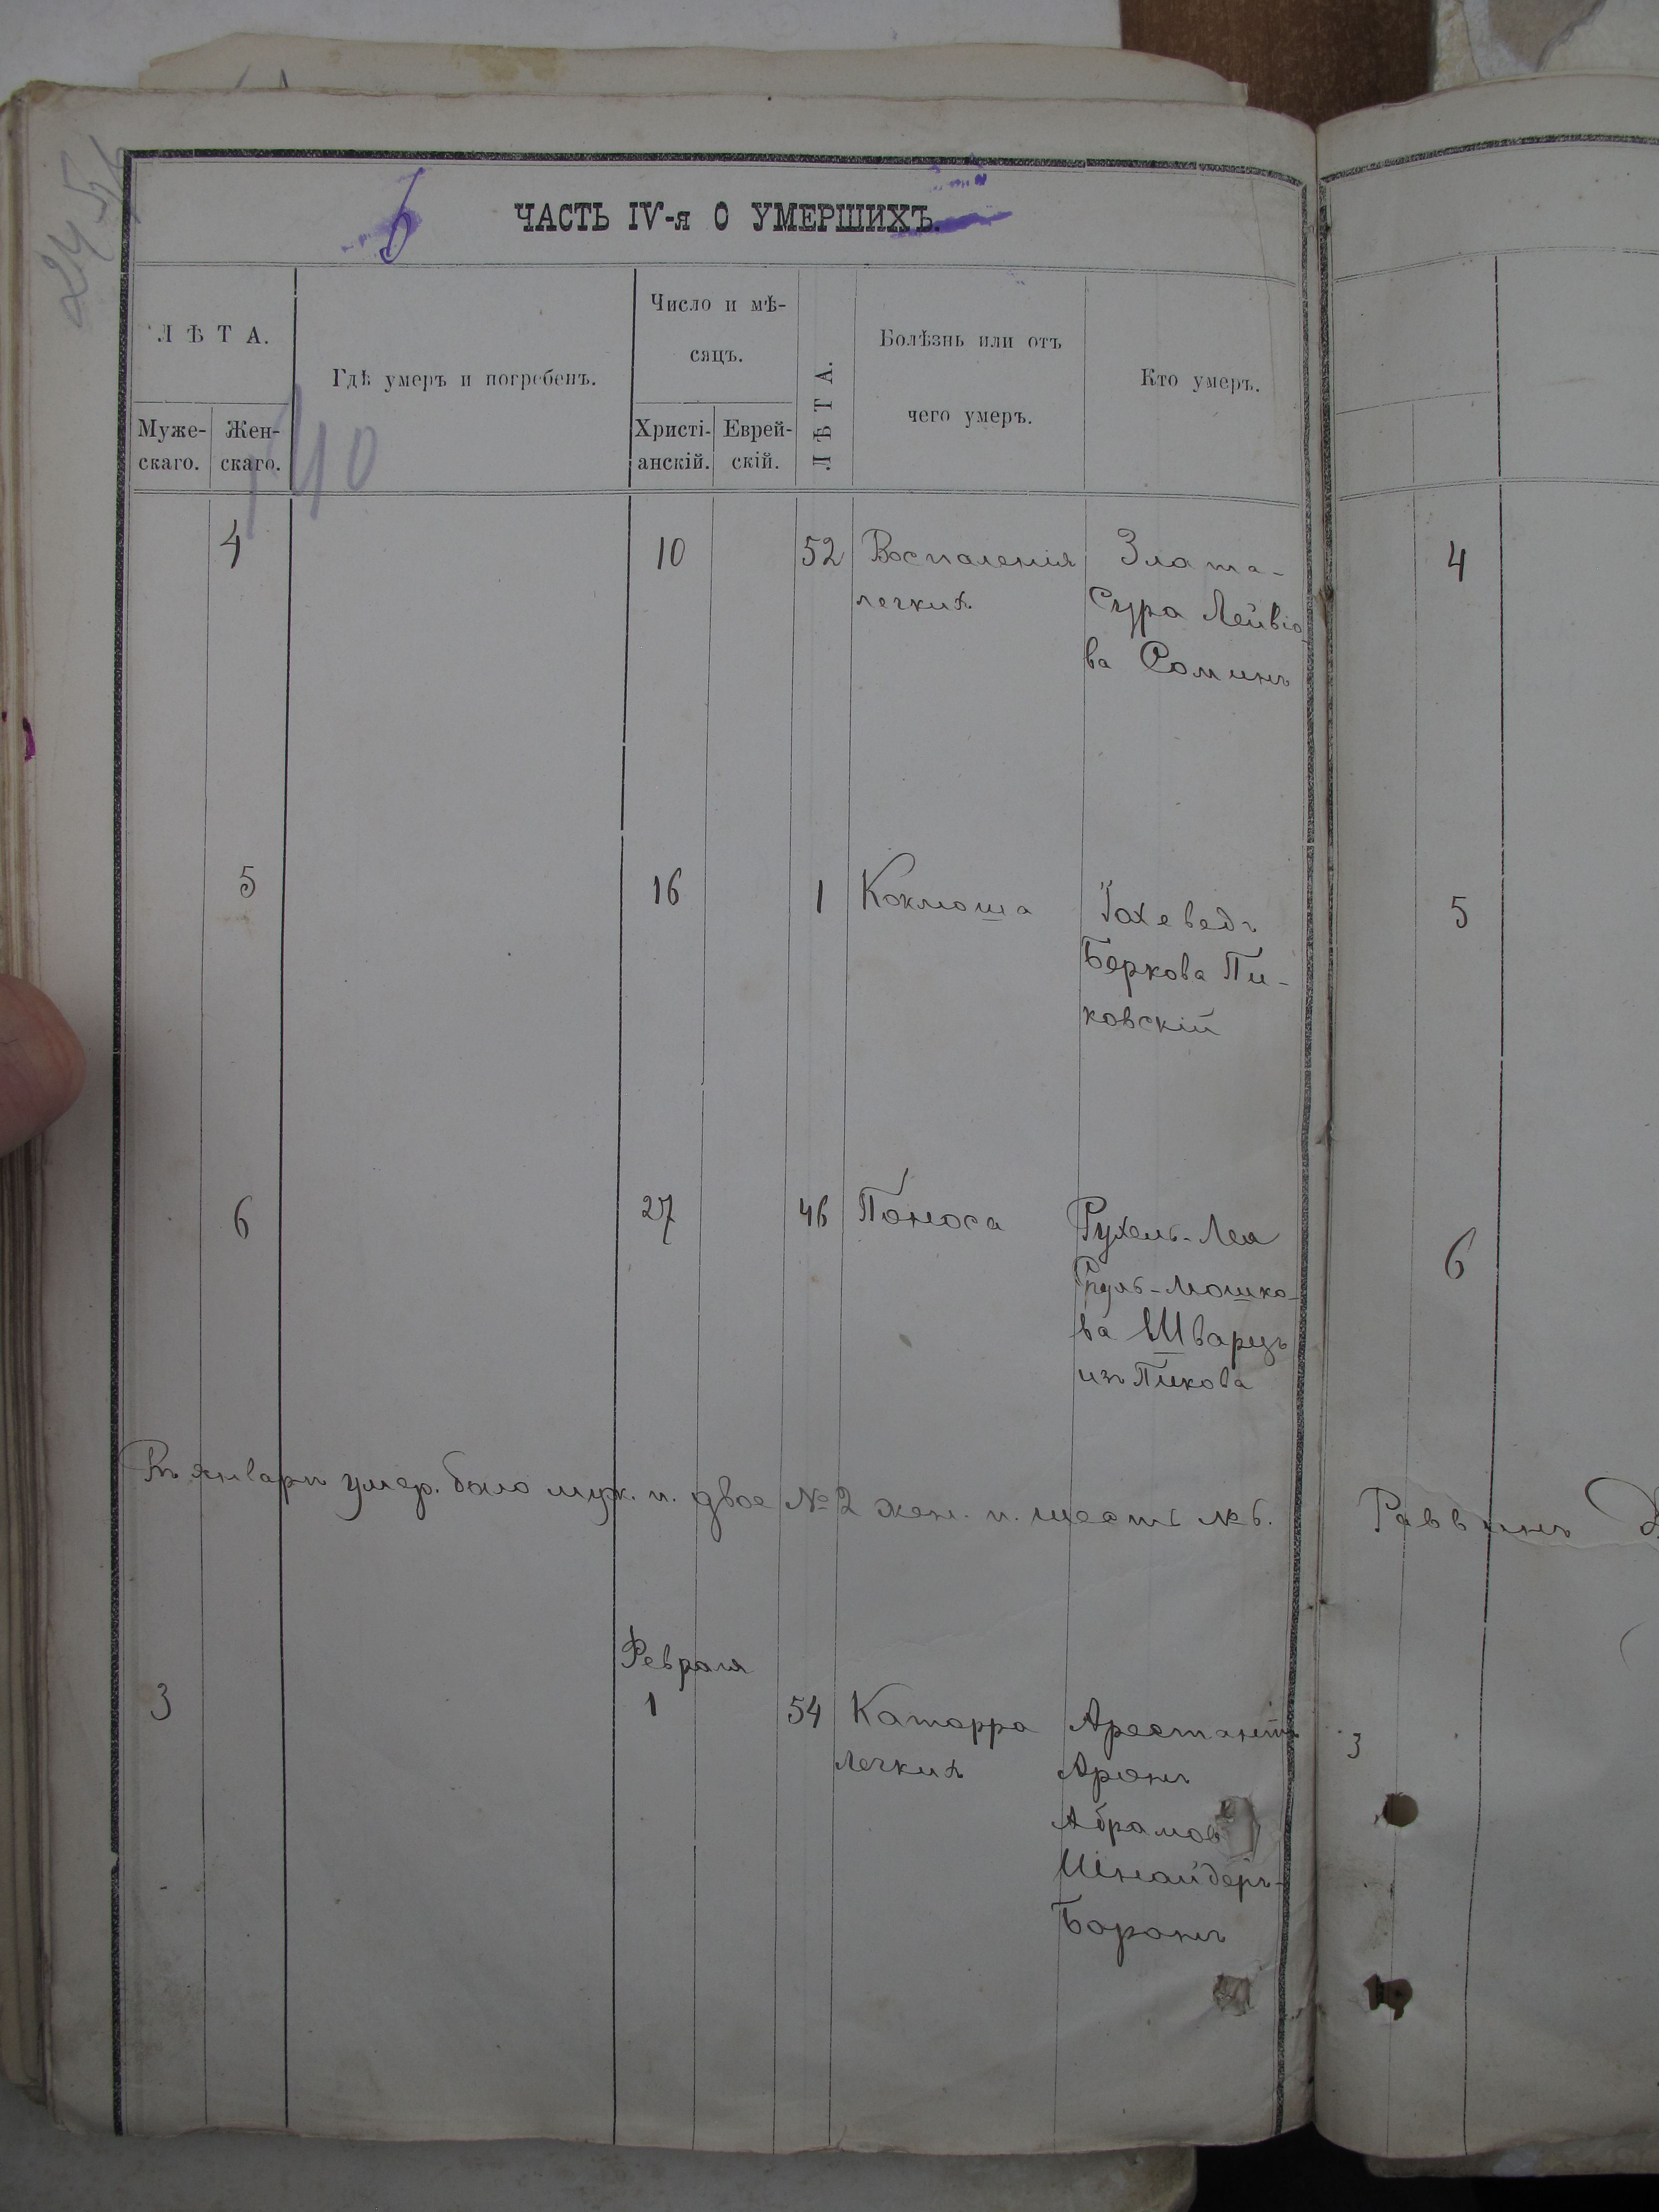 245
6
ЧАСТЬ IV-я О УМЕРШИХЪ.
ЛѢТА.
Муже-
скаго.
Жен-
скаго.
Гдѣ умеръ и погребенъ.
Число и мѣ-
сяцъ.
Христі-
анскій.
Еврей-
скій.
ЛѢТА.
Болѣзнь или отъ
чего умеръ.
Кто умеръ.
140
4 10 52 Воспаленія Злата-
легкихъ Сура Лейвіо
ва Соминъ
5 16 1 Коклюша Іохеведъ
Беркова Пи-
ковскій
6 27 46 Поноса Рухель-Лея
Сруль-Мошко-
ва Шварцъ
изъ Пикова
Въ январѣ умер. было муж. п. двое № 2 жен. п. шесть № 6.
Февраля
3 1 54 Катарра Арестантъ
легкихъ Аронъ
Абрамов
Шнайдеръ-
Баронъ
4
5
6
Раввинъ
3